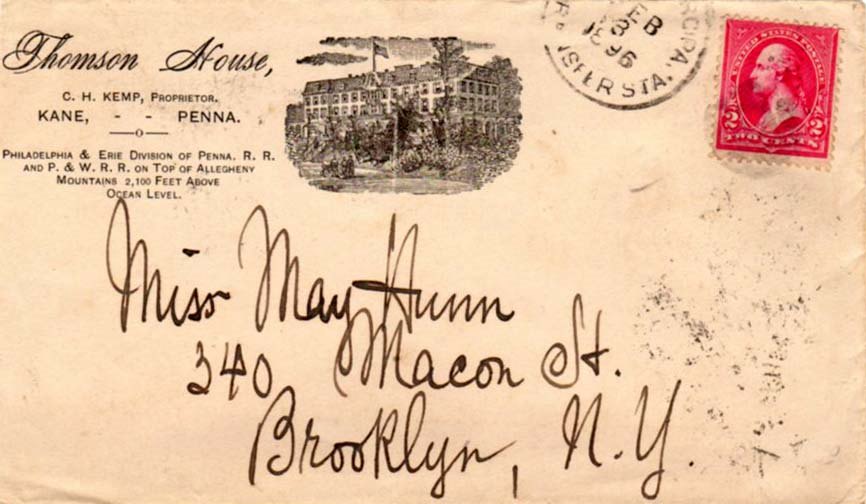 Thomson House,
C. H. KEMP, PROPRIETOR.
KANE, - - PENNA.
PHILADELPHIA & ERIE DIVISION OF PENNA. R. R.
AND P. & W. R. R. ON TOP OF ALLEGHENY
MOUNTAINS 2,100 FEET ABOVE
OCEAN LEVEL.
FEB
1896
STA.
UNITED STATES POSTAGE
2 2
TWO CENTS
Miss May Hunn
340 Macon St.
Brooklyn, N.Y.